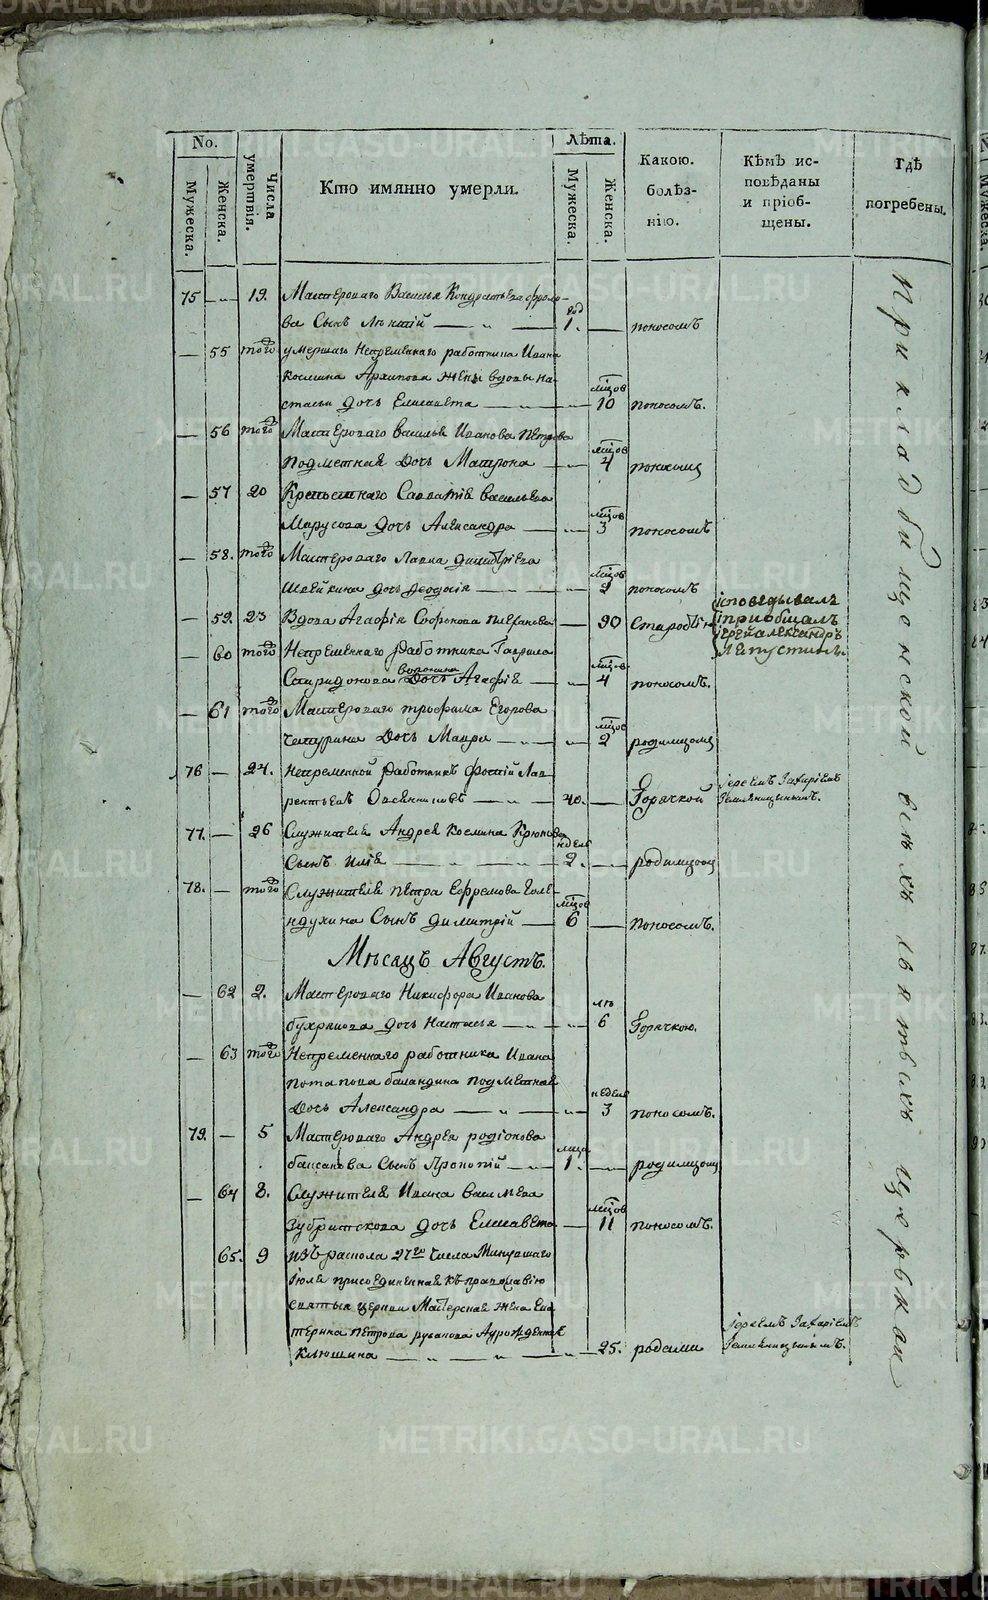 METRIKI.GASO-URAL.RU
No.
Мужеска.
Женска.
Числа умертвія.
Кто имянно умерли.
Лѣта.
Мужеска.
Женска.
Какою болѣзнію.
Кѣмъ исповѣданы и пріобщены.
Гдѣ погребены.
75 — 19. Мастероваго Василья Кондратьева Фроло-
ва Сынъ — год 1. — поносомъ
— 55 того умершаго Непременнаго работника Ивана
Космина Архипова жены вдовы На-
стасьи дочь Елисавета — мцов 10 поносомъ.
— 56 того Мастероваго Василья Иванова Петрова
подметная Дочь Матрона — мцов 4 поносомъ
— 57 20 Савватіе Васильева
Марусова дочь Александра — мцов 3 поносомъ
— 58. того Мастероваго Лавра Димитріева
дочь Феодосія — мцов 2 поносомъ
— 59. 23 Вдова Агафія Софонова — 90 Старостію
исповедывалъ
іпріобщалъ
іерей Александръ
Лепустинъ.
— 60 того Непременнаго Работника Гаврила
Спиридонова Воронина Дочь Агафія — мцов 4 поносомъ.
— 61 того Мастероваго Трофима Егорова
Чепурина Дочь Мавра — мцов 2 родимцомъ
76 — 24. Непременной Работникъ Фотій Лав-
рентьевъ Овсянниковъ — 40. — Горячкой
іереемъ Захаріемъ
Земляницынымъ.
77. — 26 Служителя Андрея Космина Крюкова
Сынъ Илія — недель 2. — родимцомъ
78. — того Служителя Петра Ефремова Голе-
ндухина Сынъ Димитрій — мцов 6 — поносомъ.
Мѣсяцъ Августъ.
— 62 2. Мастероваго Никифора Иванова
Бухрякова дочь Настасья — лѣ 6 Горячкою.
— 63 того Непременнаго работника Ивана
Потапова Баландина подметная
Дочь Александра — недель 3 поносомъ.
79. — 5 Мастероваго Андрея Родіонова
Баисанова Сынъ Прокопій — мца 1. — родимцомъ
— 64 8. Служителя Ивана Васильева
Зубритскова дочь Елисавета — мцов 11 поносомъ.
65. 9 изъ раскола 27го Числа Минувшаго
Іюля присоединенная къ православію
святыя церкви Мастерская жена Ека-
терина Петрова Русанова Ауражденная
Клюшина — 25. родами
іереемъ Захаріемъ
Земляницынымъ.
При кладбищенской всѣхъ святыхъ церкви